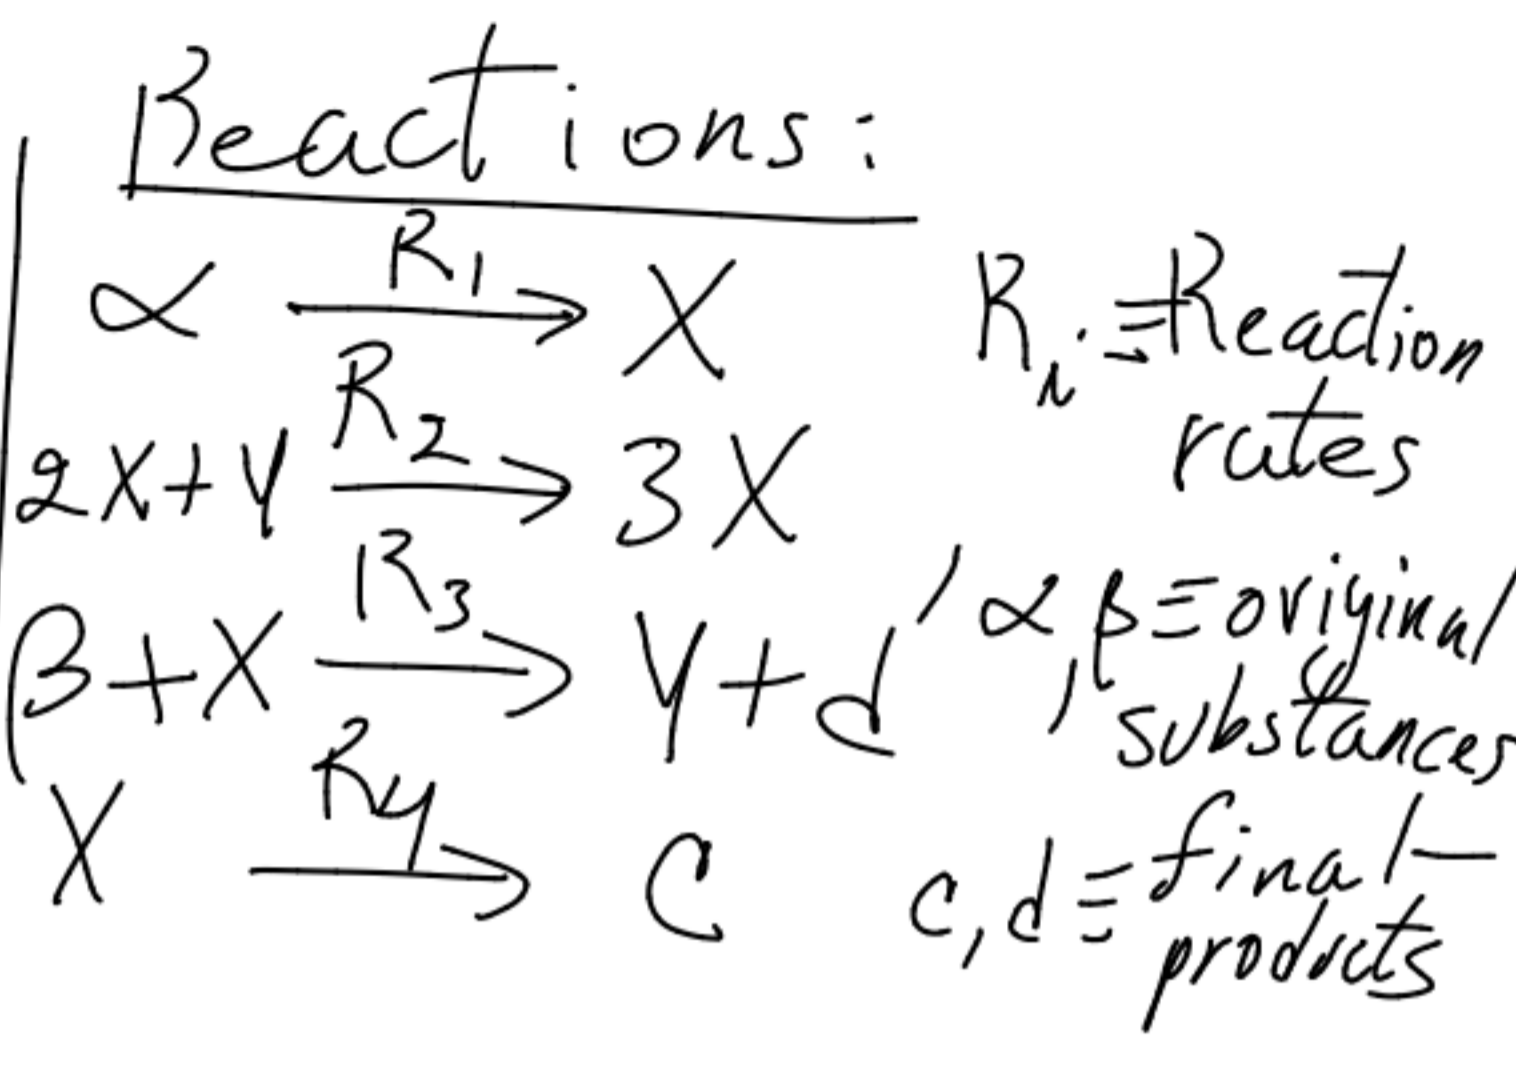 Reactions:
α R₁ → X
2X+Y R₂ → 3X
β+X R₃ → Y+d
X R₄ → C
Rᵢ ≡ Reaction
rates
, α, β ≡ original
substances
c, d ≡ final-
products